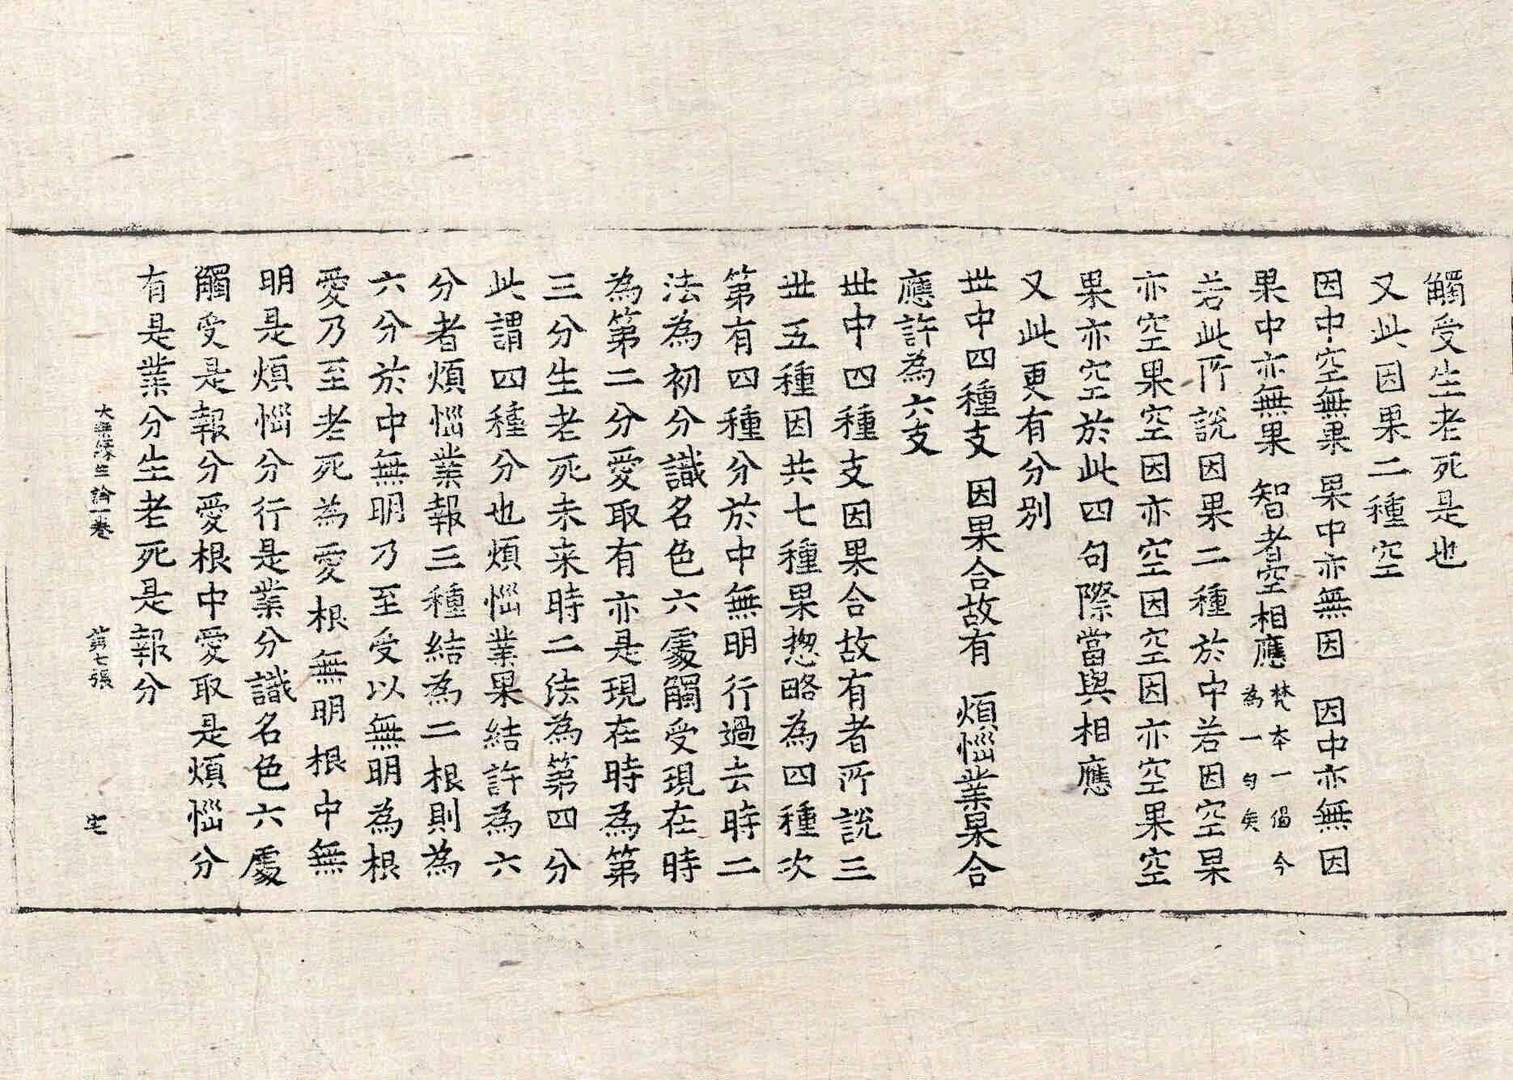 觸受生老死是也
又此因果二種空
因中空無果　果中亦無因　因中亦無因
果中亦無果　智者空相應 梵本一偈今為一句矣
若此所說因果二種於中若因空果
亦空果空因亦空因空因亦空果空
果亦空於此四句際當與相應
又此更有分別
世中四種支　因果合故有　煩惱業果合
應許為六支
世中四種支因果合故有者所說三
世五種因共七種果惣略為四種次
第有四種分於中無明行過去時二
法為初分識名色六處觸受現在時
為第二分愛取有亦是現在時為第
三分生老死未来時二法為第四分
此謂四種分也煩惱業果結許為六
分者煩惱業報三種結為二根則為
六分於中無明乃至受以無明為根
愛乃至老死為愛根無明根中無
明是煩惱分行是業分識名色六處
觸受是報分愛根中愛取是煩惱分
有是業分生老死是報分
大乘緣生論一卷　第七張　宅